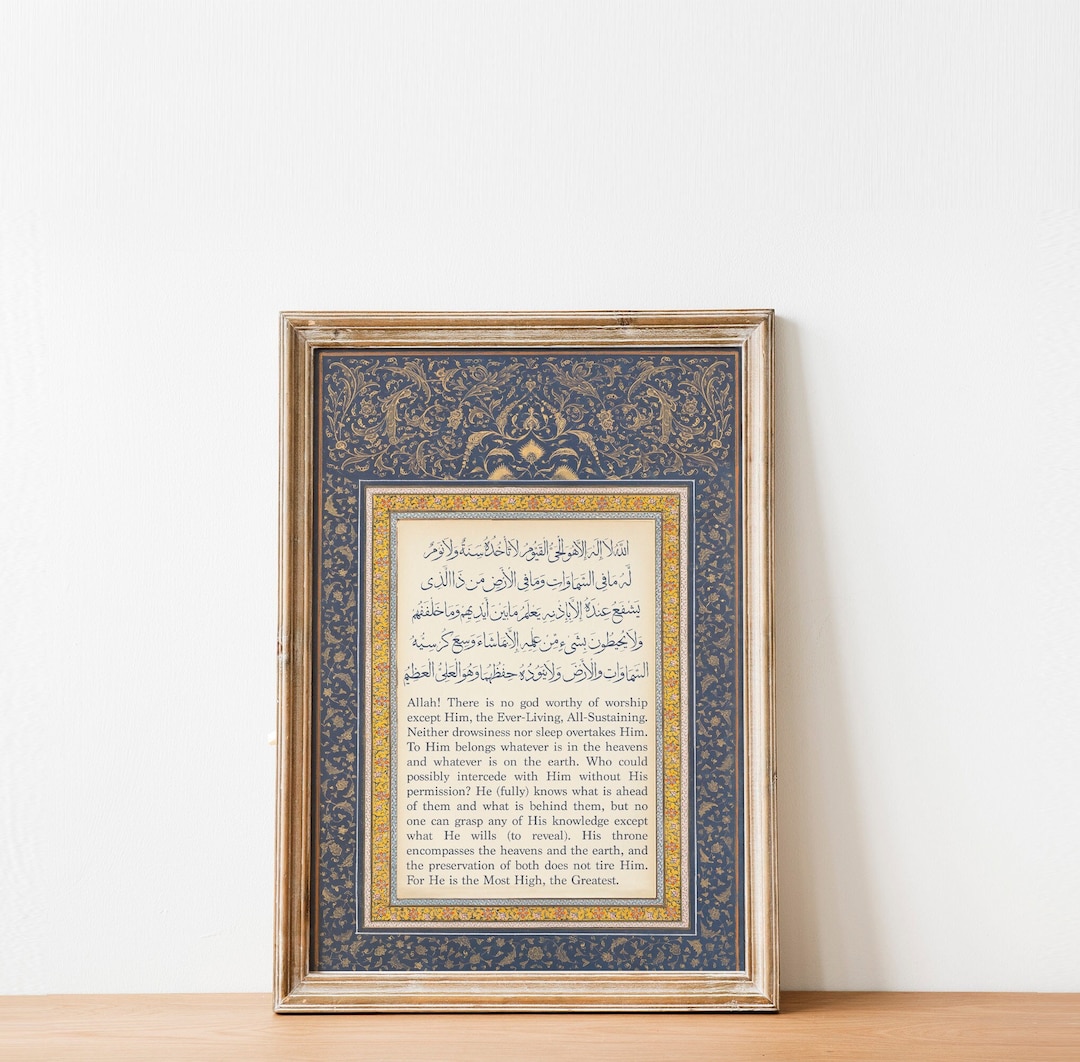 اللَّهُ لَا إِلَٰهَ إِلَّا هُوَ الْحَيُّ الْقَيُّومُ لَا تَأْخُذُهُ سِنَةٌ وَلَا نَوْمٌ
لَّهُ مَا فِي السَّمَاوَاتِ وَمَا فِي الْأَرْضِ مَن ذَا الَّذِي
يَشْفَعُ عِندَهُ إِلَّا بِإِذْنِهِ يَعْلَمُ مَا بَيْنَ أَيْدِيهِمْ وَمَا خَلْفَهُمْ
وَلَا يُحِيطُونَ بِشَيْءٍ مِّنْ عِلْمِهِ إِلَّا بِمَا شَاءَ وَسِعَ كُرْسِيُّهُ
السَّمَاوَاتِ وَالْأَرْضَ وَلَا يَئُودُهُ حِفْظُهُمَا وَهُوَ الْعَلِيُّ الْعَظِيمُ
Allah! There is no god worthy of worship
except Him, the Ever-Living, All-Sustaining.
Neither drowsiness nor sleep overtakes Him.
To Him belongs whatever is in the heavens
and whatever is on the earth. Who could
possibly intercede with Him without His
permission? He (fully) knows what is ahead
of them and what is behind them, but no
one can grasp any of His knowledge except
what He wills (to reveal). His throne
encompasses the heavens and the earth, and
the preservation of both does not tire Him.
For He is the Most High, the Greatest.